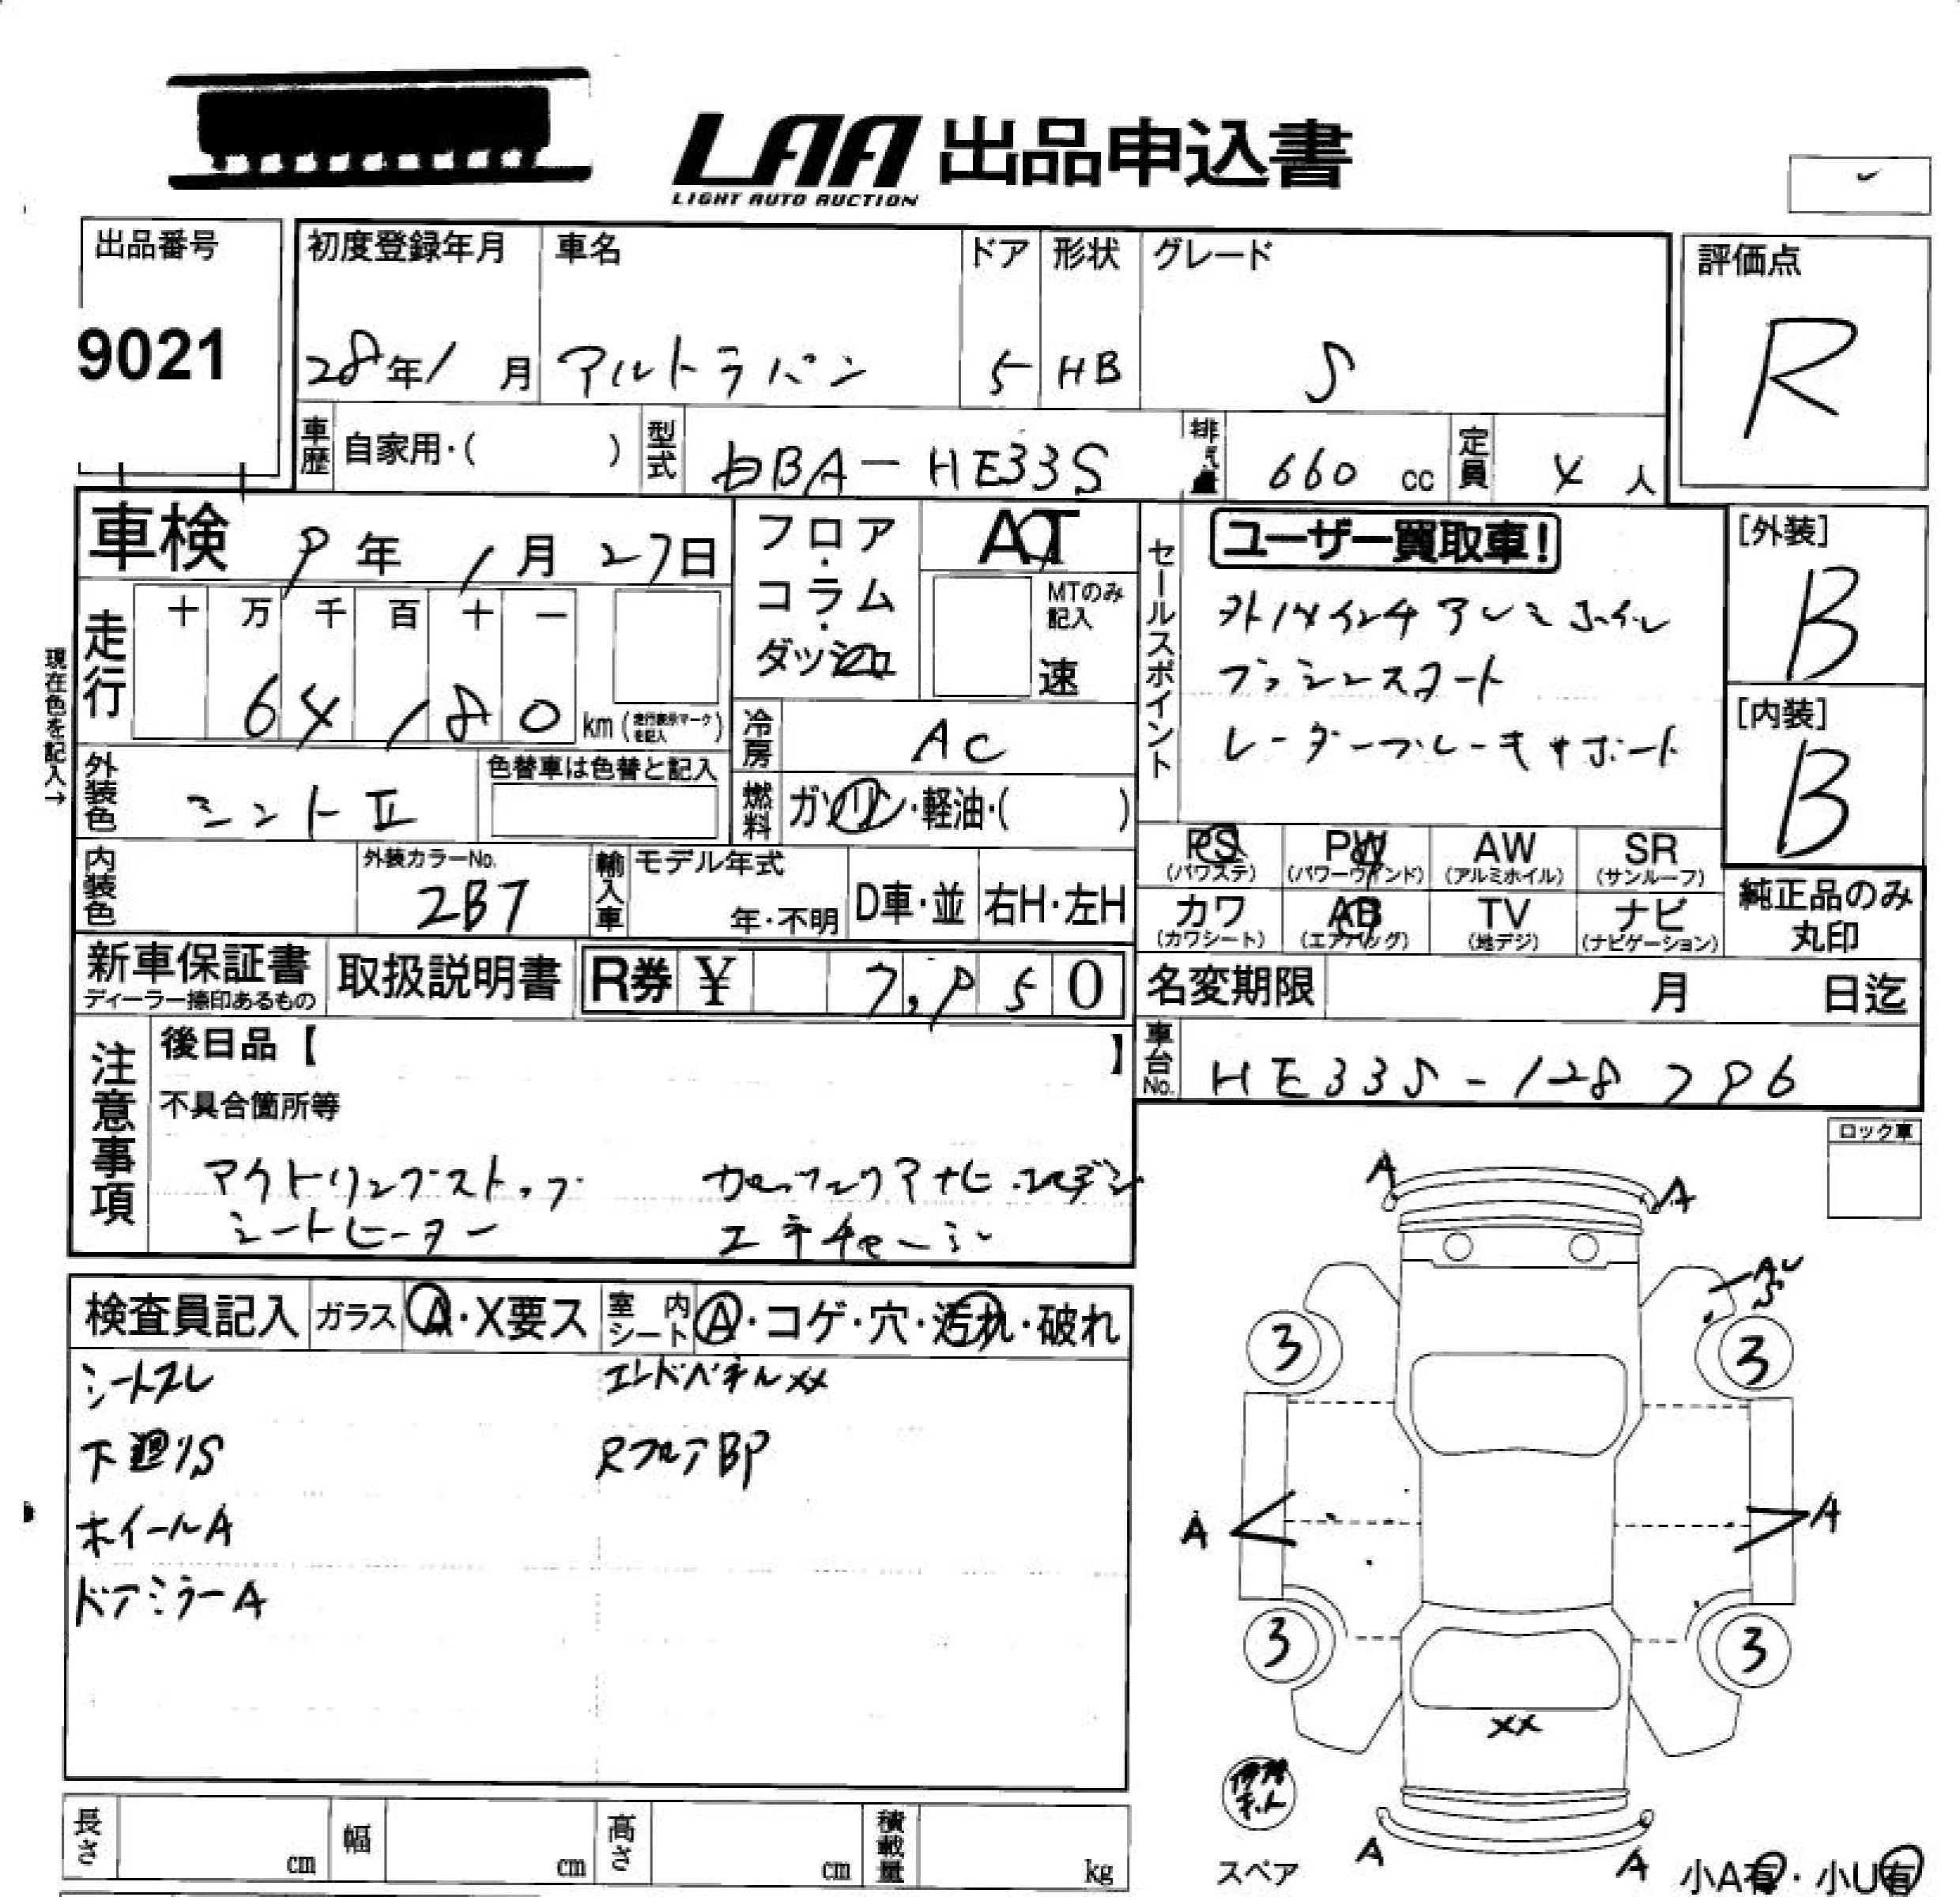 LAA 出品申込書
LIGHT AUTO AUCTION
出品番号
9021
初度登録年月 車名 ドア 形状 グレード
28年1月 アルトラパン 5 HB S
評価点
R
車歴 自家用・( ) 型式 DBA-HE33S 排気量 660 cc 定員 4 人
車検 9年1月27日
フロア・コラム・ダッシュ
AT
MTのみ記入
速
セールスポイント
ユーザー買取車!
外14インチアルミホイル
プッシュスタート
レーダーブレーキサポート
[外装]
B
[内装]
B
現在色を記入→
走行
十 万 千 百 十 一
64,180 km (走行表示マークを記入)
冷房 AC
外装色 ミントⅡ
色替車は色替と記入
燃料 ガソリン・軽油・( )
内装色
外装カラーNo.
2B7
輸入車 モデル年式
年・不明
D車・並 右H・左H
PS (パワステ) PW (パワーウインド) AW (アルミホイル) SR (サンルーフ)
カワ (カワシート) AB (エアバッグ) TV (地デジ) ナビ (ナビゲーション)
純正品のみ丸印
新車保証書
ディーラー捺印あるもの
取扱説明書
R券 ¥ 7,950
名変期限 月 日迄
車台No. HE33S-128796
注意事項
後日品【 】
不具合箇所等
アイドリングストップ
シートヒーター
エネチャージ
ロック車
検査員記入 ガラス A・X要ス 室内シート A・コゲ・穴・汚れ・破れ
シートスレ エンドパネルXX
下廻りS RフロアBP
ホイールA
ドアミラーA
A A
3 3
A A
3 3
XX
A A
スペア
小A有・小U有
長さ cm 幅 cm 高さ cm 積載量 kg